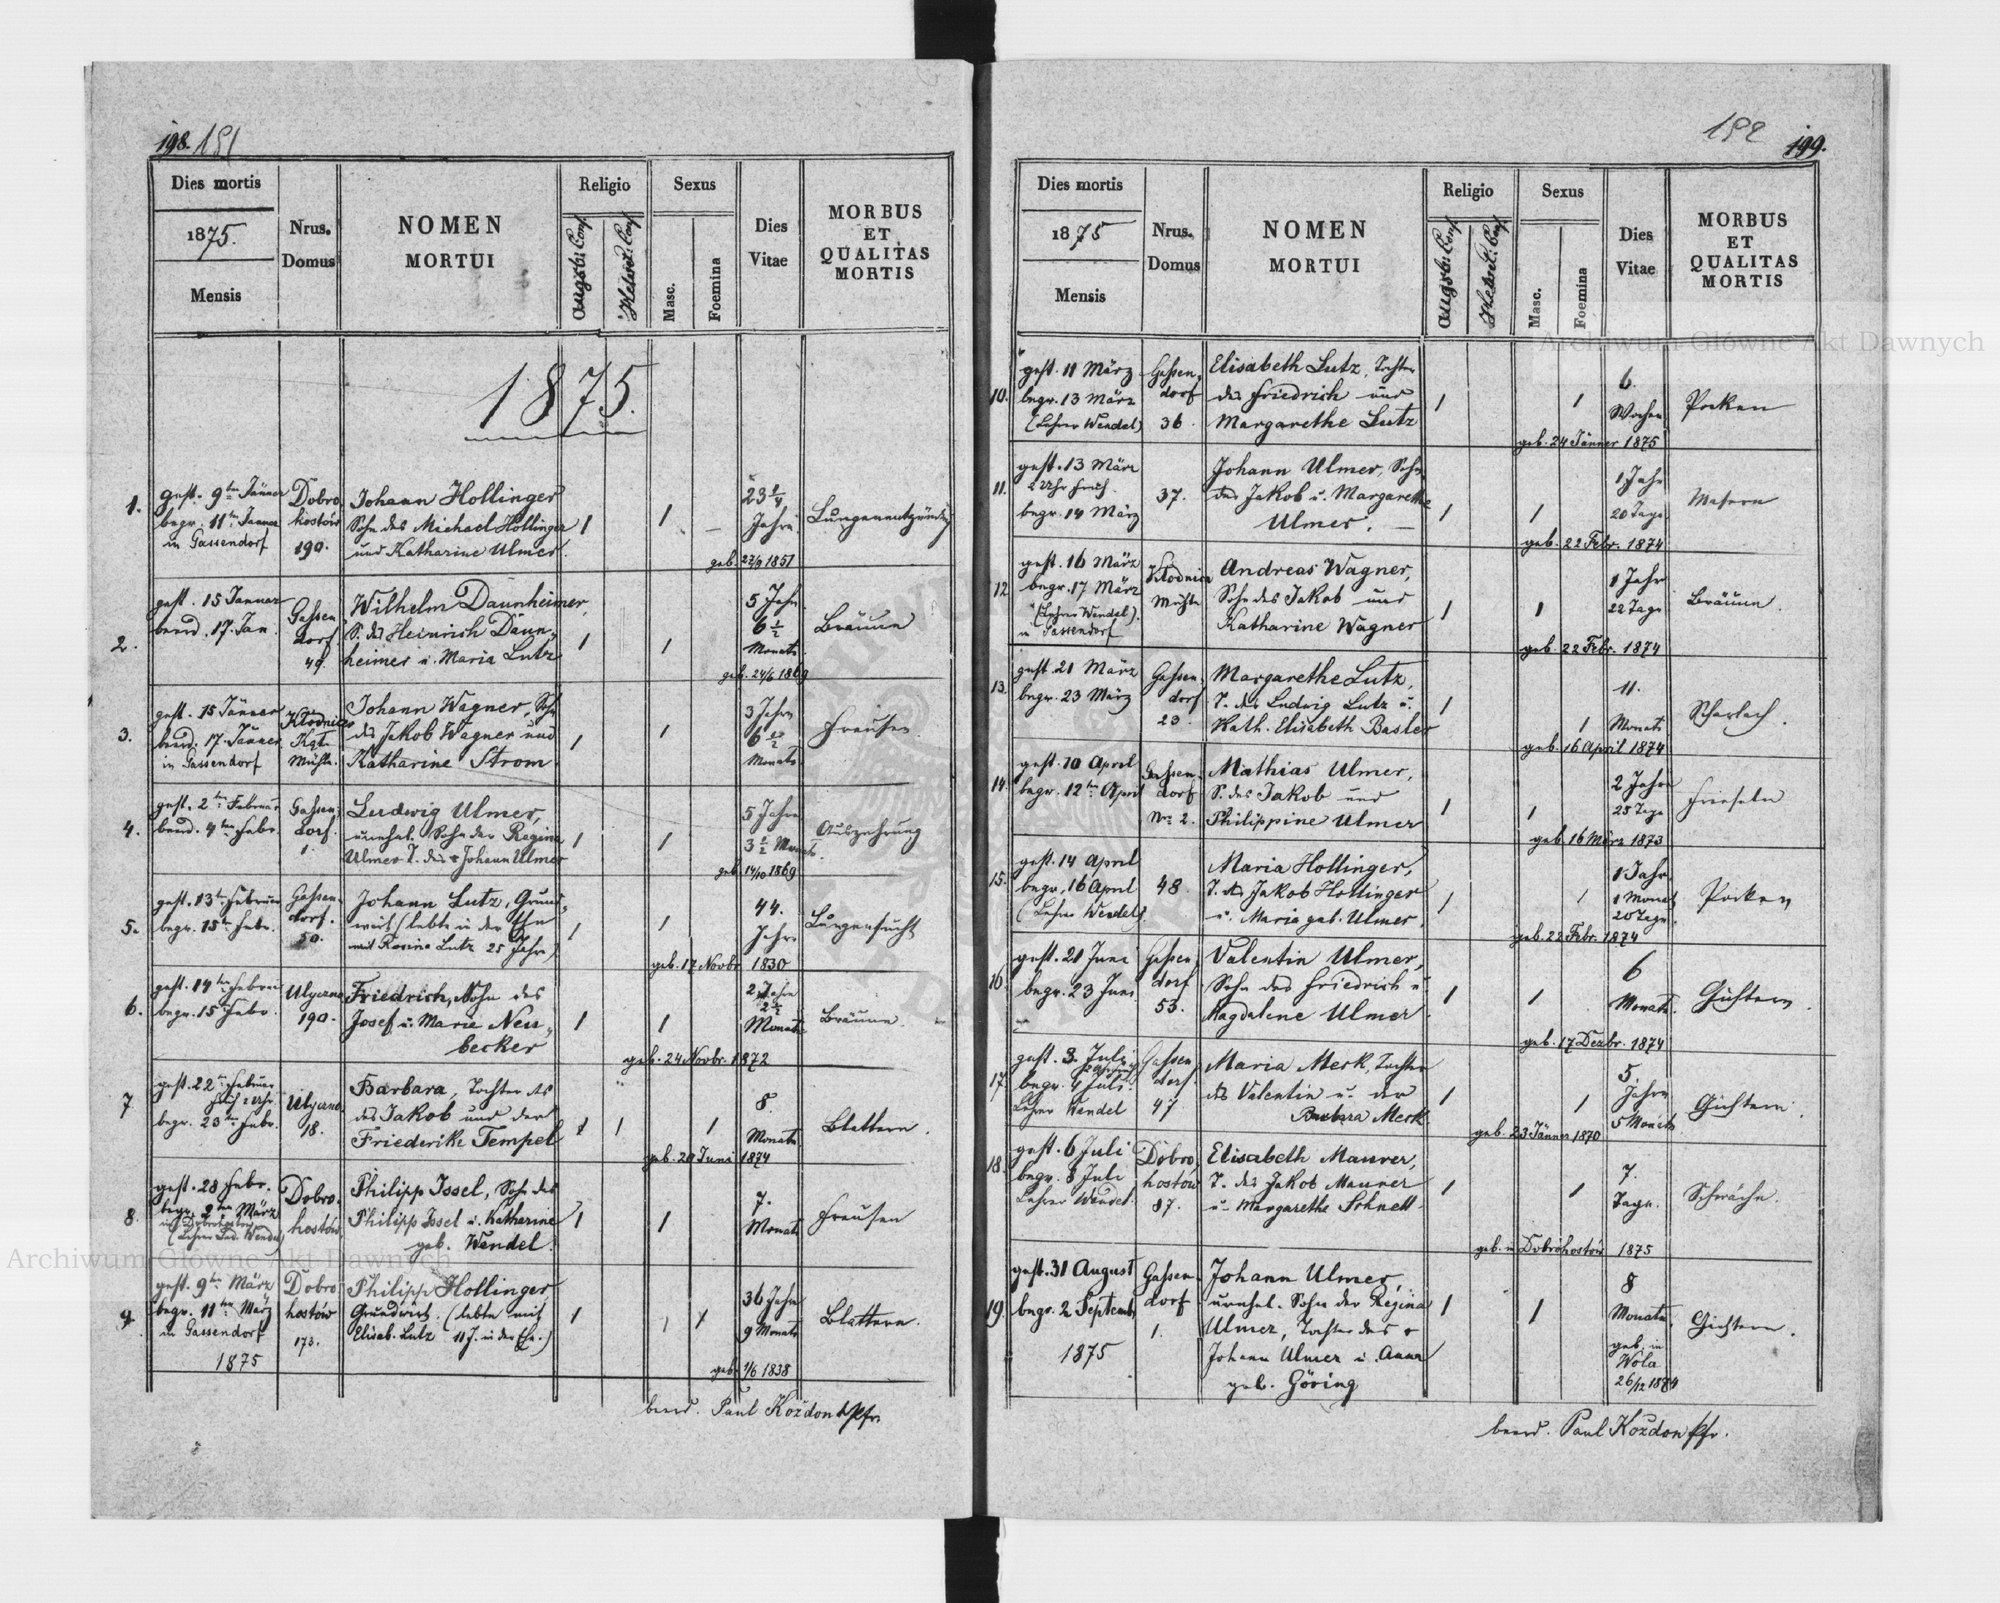 198. 181
Dies mortis
1875.
Mensis
Nrus.
Domus
NOMEN
MORTUI
Religio
Augsb. Conf.
Helvet. Conf.
Sexus
Masc.
Foemina
Dies
Vitae
MORBUS
ET
QUALITAS
MORTIS
1875.
1.
gest. 9ten Jänner
begr. 11ten Jänner
in Gassendorf
Dobro
hostów
190.
Johann Hollinger
Sohn des Michael Hollinger
und Katharine Ulmer.
23 1/4
Jahre.
geb. 22/9 1851
Lungenentzündg
2.
gest. 15 Januar
beerd. 17. Jan.
Gassen
dorf
49.
Wilhelm Daunheimer,
S. des Heinrich Daun-
heimer u. Maria Lutz
5 Jahr
6 1/2
Monate
geb. 24/6 1869
Bräune
3.
gest. 15 Jänner
beerd. 17. Jänner
in Gassendorf
Kłodnica
Kgt.
Mühle.
Johann Wagner, Sohn
des Jakob Wagner und
Katharine Strom
3 Jahre
6 1/2
Monate
Freusen
4.
gest. 2ten Februar
beerd. 4ten Febr.
Gassen
dorf.
1.
Ludwig Ulmer,
unehel. Sohn der Regina
Ulmer T. des + Johann Ulmer
5 Jahre
3 1/2 Monate
geb. 14/10 1869
Auszehrung
5.
gest. 13ten Februar
begr. 15ten Febr.
Gassen
dorf.
50.
Johann Lutz, Grund-
wirt (lebte in der Ehe
mit Rosina Lutz 25 Jahre)
44.
Jahre
geb. 17 Novbr. 1830
Lungensucht
6.
gest. 14ten Februar
begr. 15ten Febr.
Ulyczno
190.
Friedrich, Sohn des
Josef u. Marie Neu-
becker
2 Jahre
2 1/2
Monate
geb. 24 Novbr. 1872
Bräune.
7
gest. 22ten Februar
früh 2 Uhr.
begr. 23ten Febr.
Ulyczno
18.
Barbara, Tochter des
des Jakob und der
Friederike Tempel
8.
Monate
geb. 20 Juni 1874
Blattern.
8.
gest. 28 Febr.
begr. 2ten März
in Dobrohostów
(Lehrer Wendel)
Dobro
hostów
Philipp Issel, Sohn des
Philipp Issel u. Katharine
geb. Wendel.
7.
Monate
Freusen
9.
gest. 9ten März
begr. 11ten März
in Gassendorf
1875
Dobro
hostów
173.
Philipp Hollinger,
Grundwirt. (lebte mit
Elisab. Lutz 11 J. in der Ehe.)
36 Jahre
9 Monate
geb. 1/6 1838
Blattern.
beerd. Paul Koždon Pfr.
192 199.
Dies mortis
1875
Mensis
Nrus.
Domus
NOMEN
MORTUI
Religio
Augsb. Conf.
Helvet. Conf.
Sexus
Masc.
Foemina
Dies
Vitae
MORBUS
ET
QUALITAS
MORTIS
10.
gest. 11 März
begr. 13 März
(Lehrer Wendel)
Gassen
dorf
36.
Elisabeth Lutz, Tochter
des Friedrich und
Margarethe Lutz
6.
Wochen
geb. 24 Jänner 1875
Pocken
11.
gest. 13 März
2 Uhr früh.
begr. 14 März
37.
Johann Ulmer, Sohn
des Jakob u. Margarethe
Ulmer.
1 Jahr
20 Tage
geb. 22 Febr. 1874
Masern
12
gest. 16 März
begr. 17 März
(Lehrer Wendel).
in Gassendorf
Kłodnica
Mühle
Andreas Wagner,
Sohn des Jakob und
Katharine Wagner
1 Jahr
22 Tage
geb. 22 Febr. 1874
Bräune
13.
gest. 21 März
begr. 23 März
Gassen
dorf
23.
Margarethe Lutz,
T. des Ludwig Lutz u.
Kath. Elisabeth Basler
11.
Monate
geb. 16 April 1874
Scharlach.
14.
gest. 10 April
begr. 12ten April
Gassen
dorf
Nro 2.
Mathias Ulmer,
S. des Jakob und
Philippine Ulmer
2 Jahre
25 Tage
geb. 16 März 1873
Frieseln
15.
gest. 14 April
begr. 16 April
(Lehrer Wendel).
48.
Maria Hollinger,
T. des Jakob Hollinger
u. Maria geb. Ulmer.
1 Jahr
1 Monat
20 Tage
geb. 22 Febr. 1874
Pocken
16.
gest. 21 Juni
begr. 23 Juni
Gassen
dorf
53.
Valentin Ulmer,
Sohn des Friedrich u
Magdalene Ulmer.
6
Monate.
geb. 17 Dezbr. 1874
Gichtern.
17.
gest. 3. Juli
begr. 4 Juli.
Lehrer Wendel
Gassen
dorf.
47
Maria Merk, Tochter
des Valentin u. der
Barbara Merk
5.
Jahre
5 Monate
geb. 23 Jänner 1870
Gichtern.
18.
gest. 6 Juli
begr. 8 Juli
Lehrer Wendel.
Dobro
hostów
87.
Elisabeth Maurer,
T. des Jakob Maurer
u. Margarethe Schnell.
7.
Tage.
geb. in Dobrohostów 1875
Schwäche.
19.
gest. 31 August
begr. 2 Septembr.
1875
Gassen-
dorf
1.
Johann Ulmer,
unehel. Sohn der Regina
Ulmer, Tochter des +
Johann Ulmer u. Anna
geb. Göring
8
Monate.
geb. in
Wola
26/12 1874
Gichtern.
beerd. Paul Koždon Pfr.
Archiwum Główne Akt Dawnych
Archiwum Główne Akt Dawnych